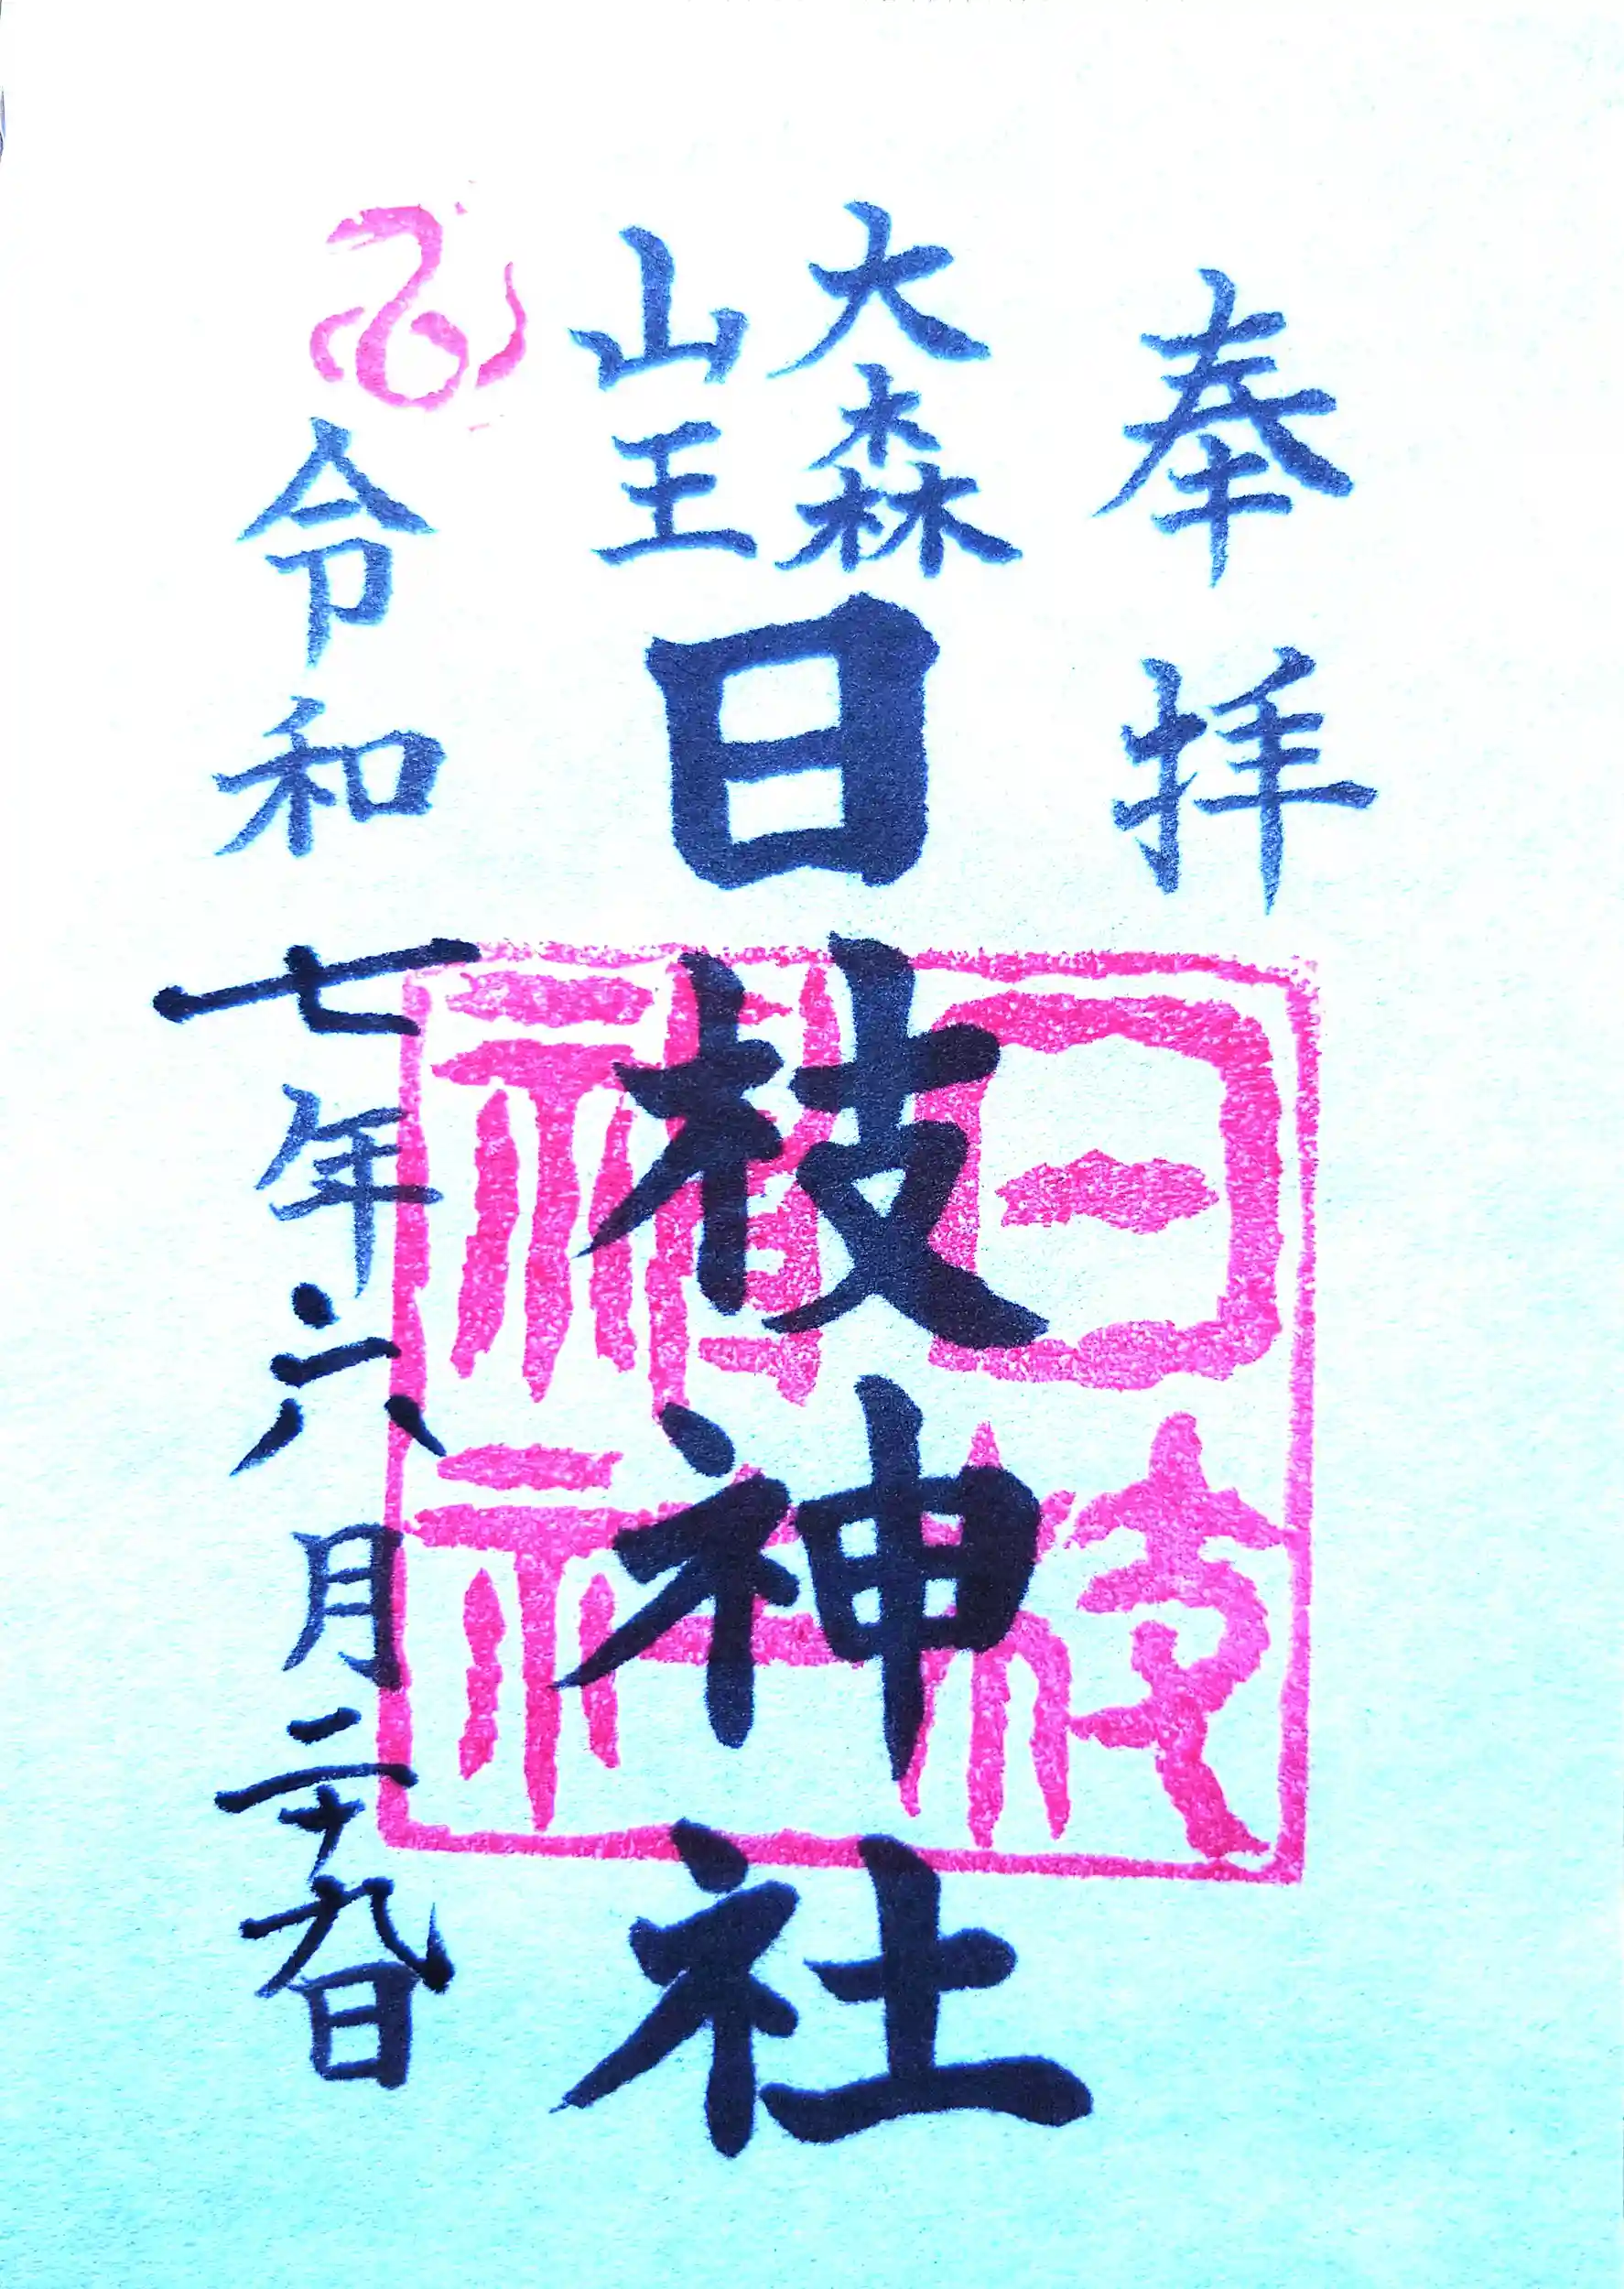 奉拝
大森
山王
日枝神社
令和七年六月二十九日
日枝神社